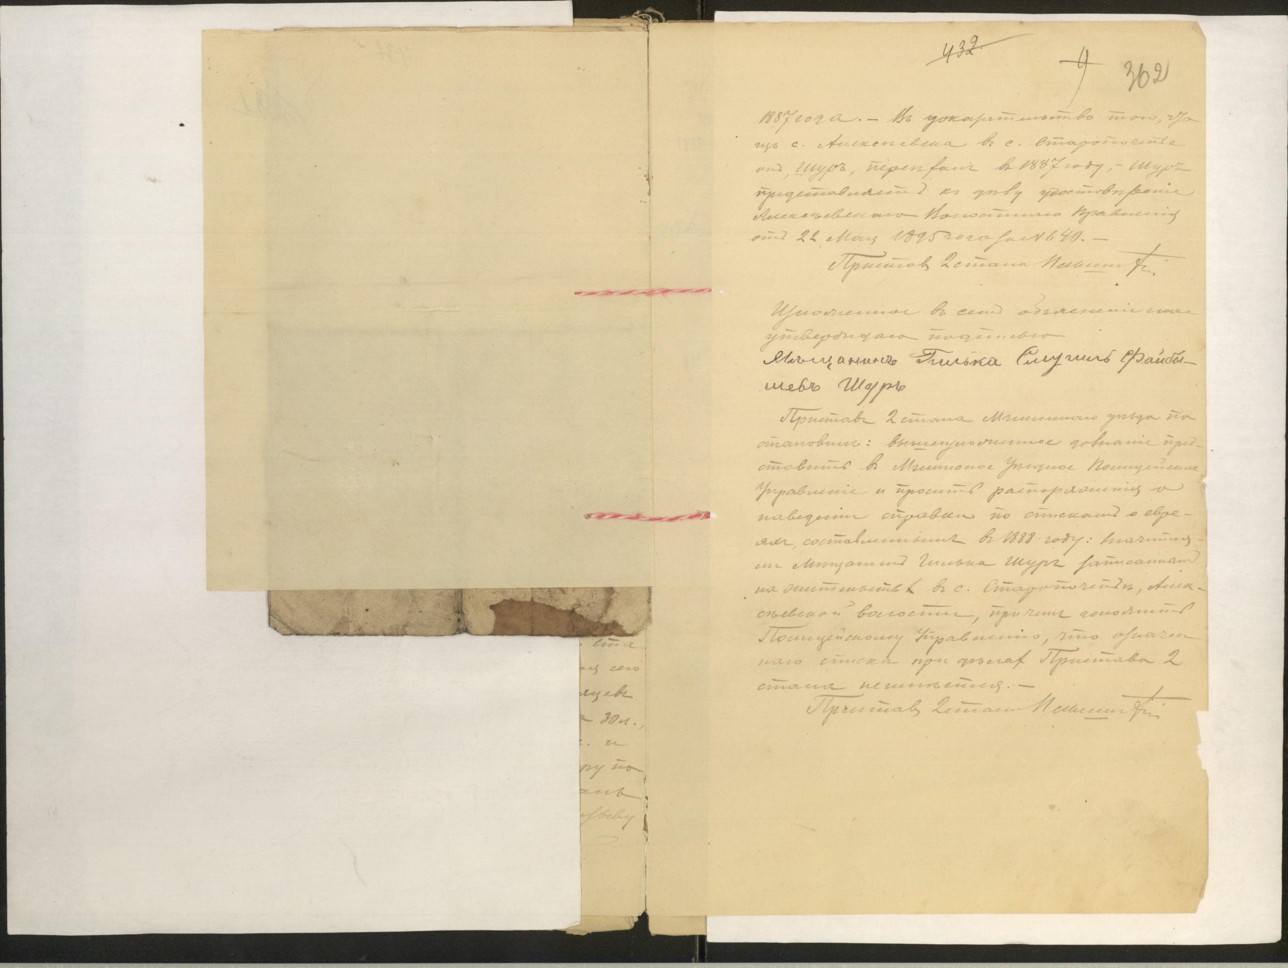 432
362
1887 года. — Въ доказательство того, что
изъ с. Алексѣевска въ с. Старопочте
онъ, Шуръ, переѣхалъ въ 1887 году, — Шуръ
представляетъ къ дѣлу удостовѣреніе
Алексѣевскаго Волостнаго Правленія
отъ 22 Мая 1895 года за № 640. —
Приставъ 2 стана
Изложенное въ семъ объясненіе мое
утверждаю подписью
Мѣщанинъ Гилька Смуилъ Файбы-
шевъ Шуръ
Приставъ 2 стана Мглинскаго уѣзда по
становилъ: вышеизложенное дознаніе пред-
ставить въ Мглинское Уѣздное Полицейское
Управленіе и просить распоряженія о
наведеніи справки по спискамъ о евре-
яхъ, составленныхъ въ 1888 году: значится
ли Мѣщанинъ Гилька Шуръ записаннымъ
на жительствѣ въ с. Старопочтѣ, Алек-
сѣевской волости, при чемъ доложить
Полицейскому Управленію, что означен
наго списка при дѣлахъ Пристава 2
стана неимѣется. —
Приставъ 2 стана
ста
сего
30 л.,
и
ру по